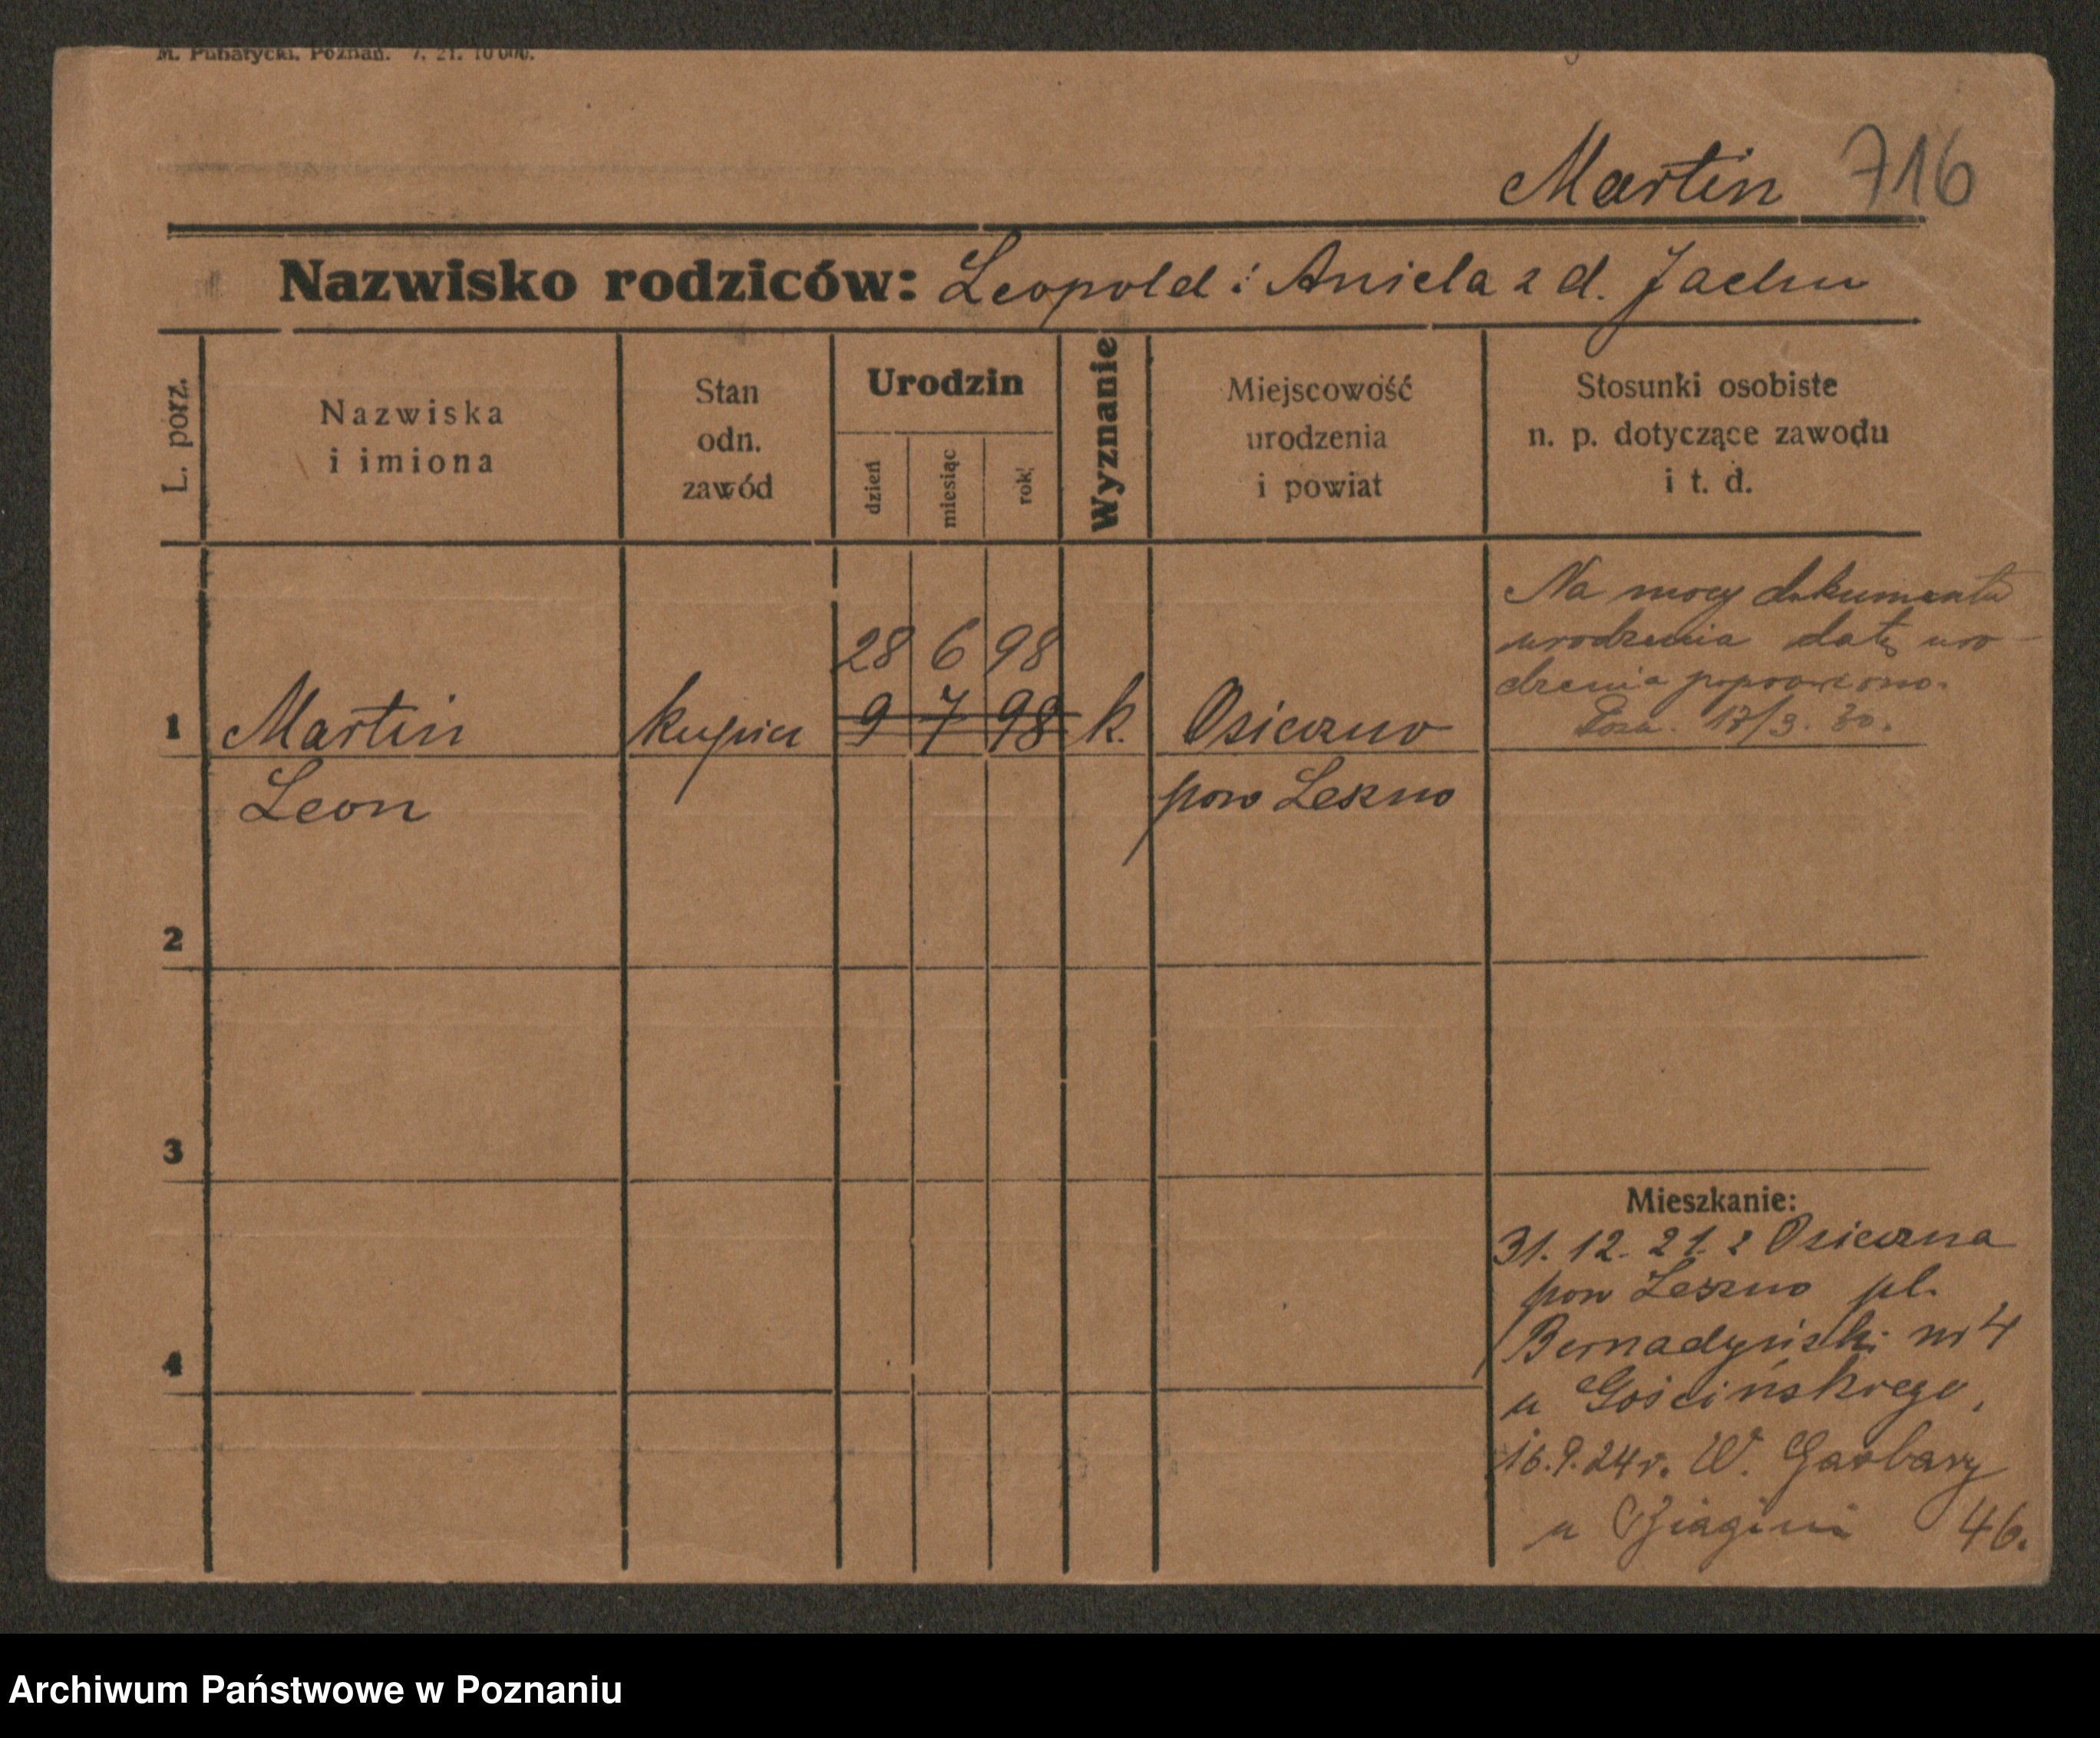 M. Puhatycki, Poznań. 7. 21. 10000.
Martin 716
Nazwisko rodziców: Leopold i Aniela z d.
L. porz.
Nazwiska
i imiona
Stan
odn.
zawód
Urodzin
dzień
miesiąc
rok
Wyznanie
Miejscowość
urodzenia
i powiat
Stosunki osobiste
n. p. dotyczące zawodu
i t. d.
Na mocy dokumentu
urodzenia datę uro-
dzenia poprawiono.
Pozn. 17/3. 30.
28 6 98
1 Martin kupiec 9 7 98 k. Osieczno
Leon pow Leszno
2
3
4
Mieszkanie:
31. 12. 21. z Osieczna
pow Leszno pl.
Bernadyński nr 4
u Gościńskiego,
16.9.24 r. W. Garbary
u 46.
Archiwum Państwowe w Poznaniu